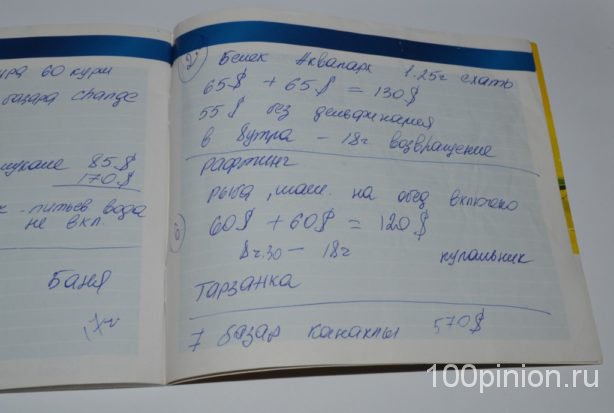 60 кури
базара change
85$
170$
питьев вода
не вкл.
Баня
2 Белек Аквапарк 1.25ч ехать
65$ + 65$ = 130$
55$ без дельфинария
в 8 утра - 18ч возвращение
рафтинг
рыба, шаш. на обед включено
6 60$ + 60$ = 120$
8ч.30 - 18ч купальник
тарзанка
7 базар Конаклы 570$
100pinion.ru